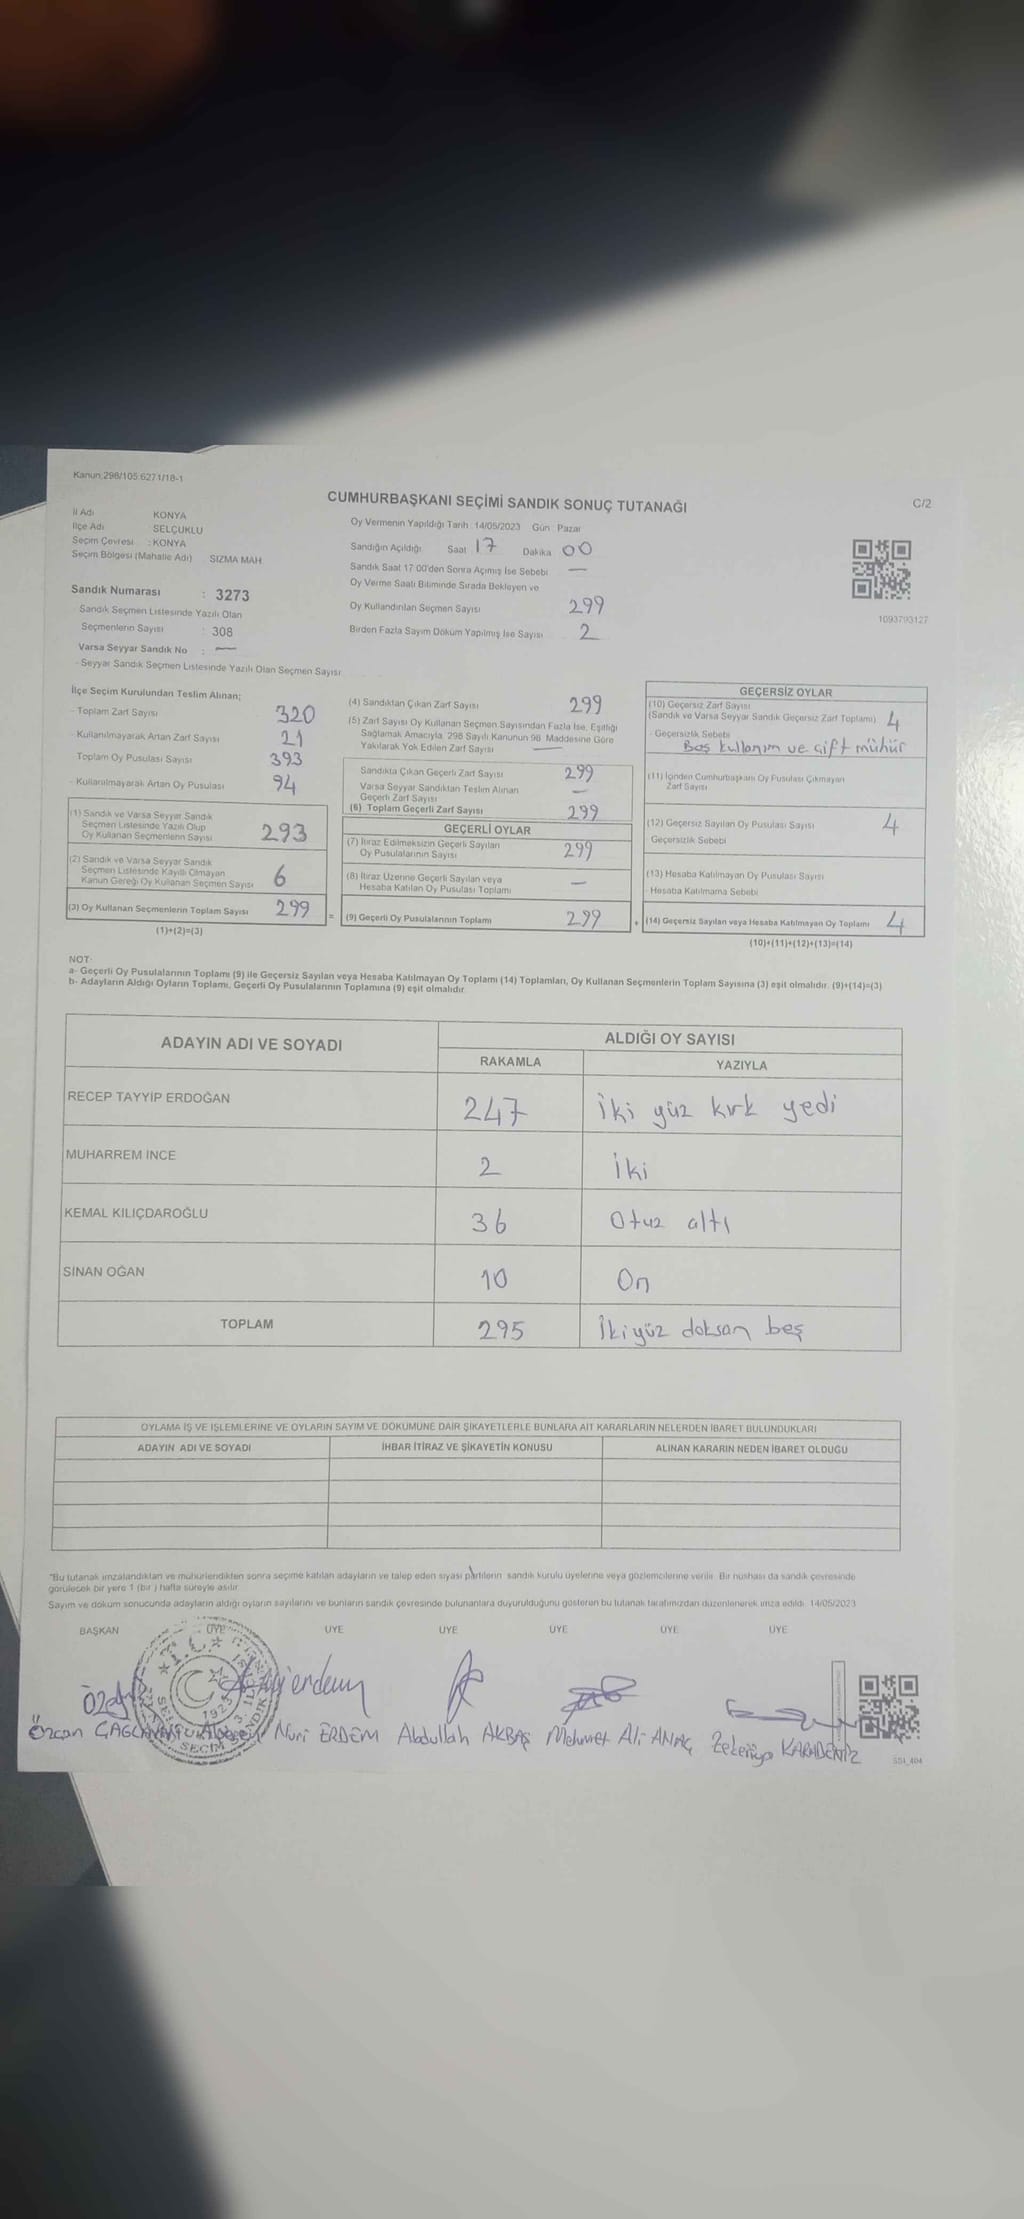 Kanun:298/105.6271/18-1
CUMHURBAŞKANI SEÇİMİ SANDIK SONUÇ TUTANAĞI
C/2
İl Adı KONYA
İlçe Adı SELÇUKLU
Seçim Çevresi : KONYA
Seçim Bölgesi (Mahalle Adı) SIZMA MAH
Sandık Numarası : 3273
Sandık Seçmen Listesinde Yazılı Olan
Seçmenlerin Sayısı : 308
Varsa Seyyar Sandık No : —
- Seyyar Sandık Seçmen Listesinde Yazılı Olan Seçmen Sayısı
Oy Vermenin Yapıldığı Tarih : 14/05/2023 Gün : Pazar
Sandığın Açıldığı Saat 17 Dakika 00
Sandık Saat 17:00'den Sonra Açımış İse Sebebi —
Oy Verme Saati Bitiminde Sırada Bekleyen ve
Oy Kullandırılan Seçmen Sayısı 299
Birden Fazla Sayım Döküm Yapılmış İse Sayısı 2
1093793127
İlçe Seçim Kurulundan Teslim Alınan;
- Toplam Zarf Sayısı 320
- Kullanılmayarak Artan Zarf Sayısı 21
Toplam Oy Pusulası Sayısı 393
- Kullanılmayarak Artan Oy Pusulası 94
(1) Sandık ve Varsa Seyyar Sandık
Seçmen Listesinde Yazılı Olup
Oy Kullanan Seçmenlerin Sayısı 293
(2) Sandık ve Varsa Seyyar Sandık
Seçmen Listesinde Kayıtlı Olmayan
Kanun Gereği Oy Kullanan Seçmen Sayısı 6
(3) Oy Kullanan Seçmenlerin Toplam Sayısı 299
(1)+(2)=(3)
=
(4) Sandıktan Çıkan Zarf Sayısı 299
(5) Zarf Sayısı Oy Kullanan Seçmen Sayısından Fazla İse, Eşitliği
Sağlamak Amacıyla 298 Sayılı Kanunun 98. Maddesine Göre
Yakılarak Yok Edilen Zarf Sayısı —
Sandıkta Çıkan Geçerli Zarf Sayısı 299
Varsa Seyyar Sandıktan Teslim Alınan
Geçerli Zarf Sayısı —
(6) Toplam Geçerli Zarf Sayısı 299
GEÇERLİ OYLAR
(7) İtiraz Edilmeksizin Geçerli Sayılan
Oy Pusulalarının Sayısı 299
(8) İtiraz Üzerine Geçerli Sayılan veya
Hesaba Katılan Oy Pusulası Toplamı —
(9) Geçerli Oy Pusulalarının Toplamı 299
+
GEÇERSİZ OYLAR
(10) Geçersiz Zarf Sayısı
(Sandık ve Varsa Seyyar Sandık Geçersiz Zarf Toplamı) 4
- Geçersizlik Sebebi
Boş kullanım ve çift mühür
(11) İçinden Cumhurbaşkanı Oy Pusulası Çıkmayan
Zarf Sayısı
(12) Geçersiz Sayılan Oy Pusulası Sayısı 4
Geçersizlik Sebebi
(13) Hesaba Katılmayan Oy Pusulası Sayısı
- Hesaba Katılmama Sebebi
(14) Geçersiz Sayılan veya Hesaba Katılmayan Oy Toplamı 4
(10)+(11)+(12)+(13)=(14)
NOT:
a- Geçerli Oy Pusulalarının Toplamı (9) ile Geçersiz Sayılan veya Hesaba Katılmayan Oy Toplamı (14) Toplamları, Oy Kullanan Seçmenlerin Toplam Sayısına (3) eşit olmalıdır. (9)+(14)=(3)
b- Adayların Aldığı Oyların Toplamı, Geçerli Oy Pusulalarının Toplamına (9) eşit olmalıdır.
ADAYIN ADI VE SOYADI ALDIĞI OY SAYISI
RAKAMLA YAZIYLA
RECEP TAYYİP ERDOĞAN 247 İki yüz kırk yedi
MUHARREM İNCE 2 İki
KEMAL KILIÇDAROĞLU 36 Otuz altı
SİNAN OĞAN 10 On
TOPLAM 295 İkiyüz doksan beş
OYLAMA İŞ VE İŞLEMLERİNE VE OYLARIN SAYIM VE DÖKÜMÜNE DAİR ŞİKAYETLERLE BUNLARA AİT KARARLARIN NELERDEN İBARET BULUNDUKLARI
ADAYIN ADI VE SOYADI İHBAR İTİRAZ VE ŞİKAYETİN KONUSU ALINAN KARARIN NEDEN İBARET OLDUĞU
"Bu tutanak imzalandıktan ve mühürlendikten sonra seçime katılan adayların ve talep eden siyasi partilerin sandık kurulu üyelerine veya gözlemcilerine verilir. Bir nüshası da sandık çevresinde
görülecek bir yere 1 (bir) hafta süreyle asılır.
Sayım ve döküm sonucunda adayların aldığı oyların sayılarını ve bunların sandık çevresinde bulunanlara duyurulduğunu gösteren bu tutanak tarafımızdan düzenlenerek imza edildi. 14/05/2023
BAŞKAN ÜYE ÜYE ÜYE ÜYE ÜYE ÜYE
T.C.
1923
SEÇİM
Özcan Nuri ERDEM Abdullah AKBAŞ Mehmet Ali ANAÇ Zekeriya KARADENİZ
SS1_404